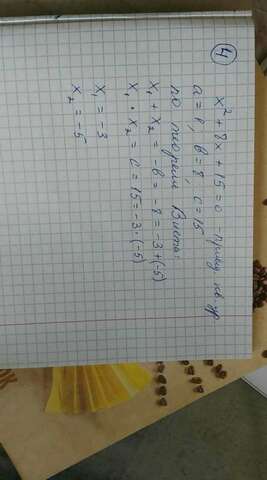 ④
x² + 8x + 15 = 0 - привед кв ур
a = 1, b = 8, c = 15
по теореме Виета:
x₁ + x₂ = -b = -8 = -3 + (-5)
x₁ · x₂ = c = 15 = -3 · (-5)
x₁ = -3
x₂ = -5